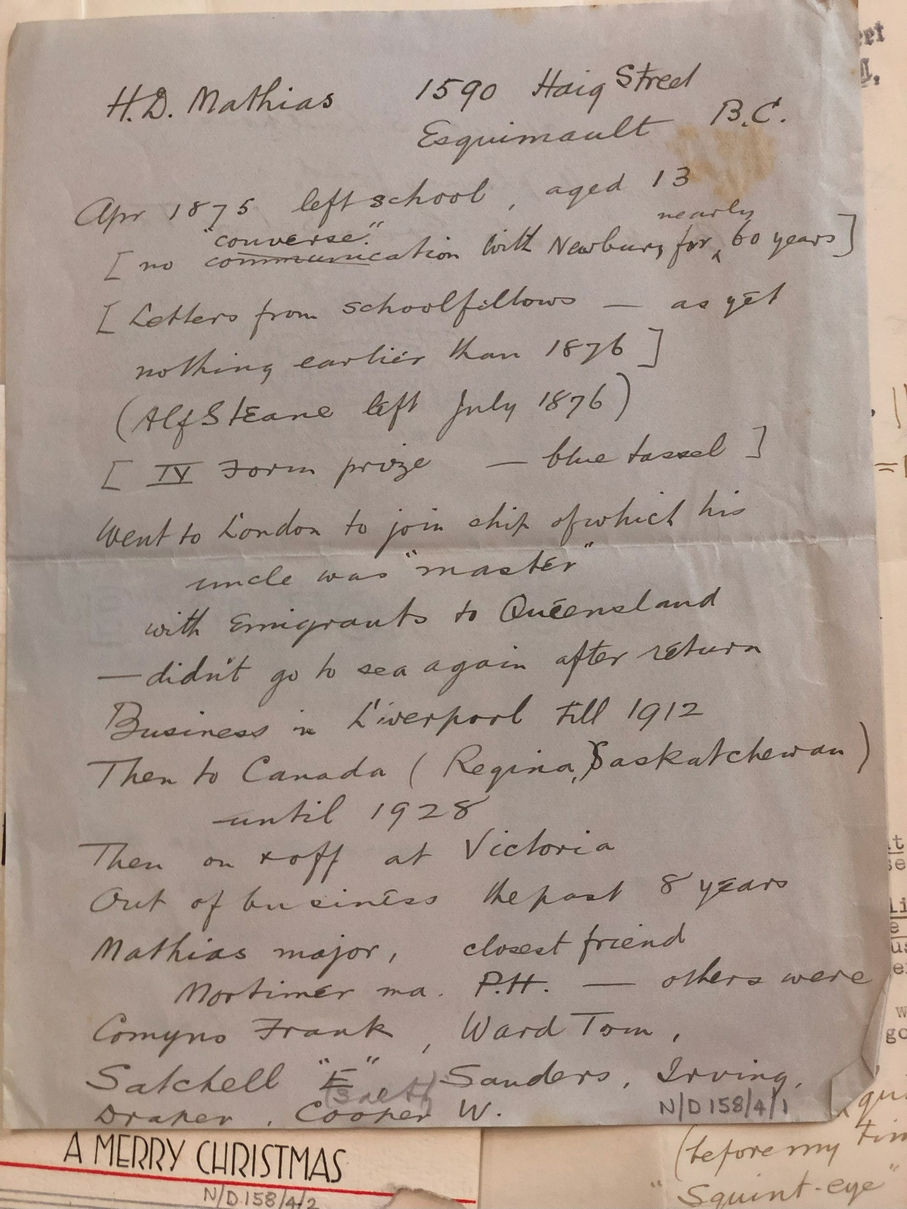 H.D. Mathias 1590 Haig Street
Esquimault B.C.
Apr 1875 left school, aged 13
"converse" nearly
[ no communication with Newbury for ‸ 60 years ]
[ Letters from schoolfellows — as yet
nothing earlier than 1876 ]
(Alf Steane left July 1876)
[ IV Form prize — blue tassel ]
Went to London to join ship of which his
uncle was "master"
with Emigrants to Queensland
— didn't go to sea again after return
Business in Liverpool till 1912
Then to Canada ( Regina, Saskatchewan )
until 1928
Then on & off at Victoria
Out of business the past 8 years
Mathias major, closest friend
Mortimer ma. P.H. — others were
Comyns Frank, Ward Tom,
Satchell "E" Sanders, Irving,
Draper, Cooper W.
N/D 158/4/1
A MERRY CHRISTMAS
N/D 158/4/2
(before my
"Squint-eye"